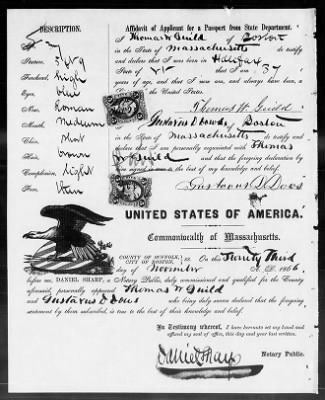 DESCRIPTION.
Affidavit of Applicant for a Passport from State Department.
I Thomas W Guild of Boston
in the State of Massachusetts do testify
and declare that I was born in Halifax
State of and that I am 37
years of age, and that I am now, and always have been, a
the United States.
Stature, 5 ft 9
Forehead, high
Eyes, blue
Nose, Roman
Mouth, medium
Chin, short
Hair, brown
Complexion, light
Face, thin
Thomas W. Guild
I Gustavus D Dows of Boston
in the State of Massachusetts do testify and
declare that I am personally acquainted with Thomas
W Guild and that the foregoing declaration by
signed is true to the best of my knowledge and belief.
Gustavus D. Dows
UNITED STATES OF AMERICA.
Commonwealth of Massachusetts.
COUNTY OF SUFFOLK,
CITY OF BOSTON, ss. On this Twenty Third
day of November A. D. 1866
before me, DANIEL SHARP, a Notary Public, duly commissioned and qualified for the County
aforesaid, personally appeared Thomas W Guild
and Gustavus D Dows who being duly sworn declared that the foregoing
statement by them subscribed, is true to the best of their knowledge and belief.
In Testimony whereof, I have hereunto set my hand and
affixed my seal of office, this day and year last written.
Daniel Sharp
Notary Public.